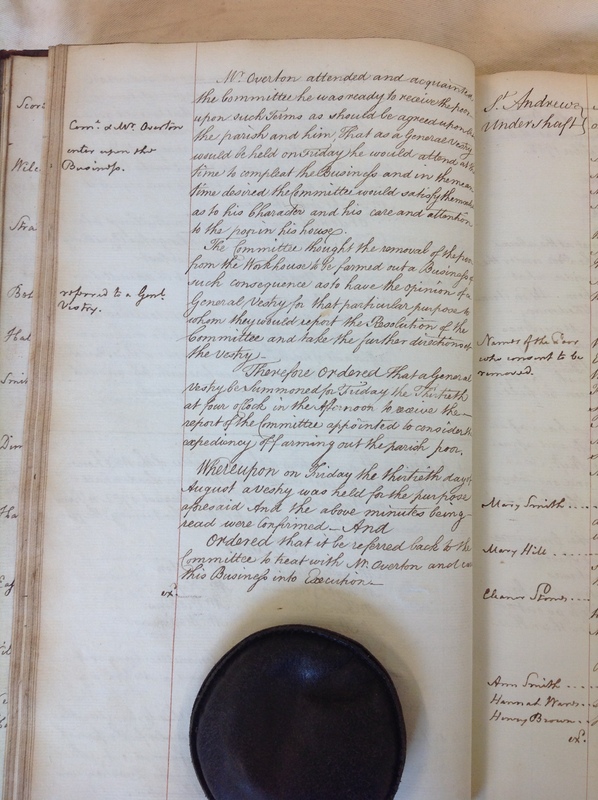 Mr. Overton attended and acquainted
the Committee he was ready to receive the poor
upon such Terms as should be agreed upon
the parish and him, That as a General Vestry
would be held on Friday he would attend at
time to compleat the Business and in the mean
time desired the Committee would satisfy themselves
as to his Character and his care and attention
to the poor in his house.
The Committee thought the removal of the poor
from the Workhouse to be farmed out a Business of
such consequence as to have the opinion of a
General Vestry for that particular purpose to
whom they would report the Resolution of the
Committee and take the further directions of
the vestry
Therefore Ordered That a General
Vestry be Summoned for Friday the Thirtieth
at four o'Clock in the Afternoon to receive the
report of the Committee appointed to consider the
expediency of farming out the parish poor.
Whereupon on Friday the thirtieth day of
August a Vestry was held for the purpose
aforesaid And the above minutes being
read were confirmed And
Ordered that it be referred back to the
Committee to treat with Mr. Overton and
this Business into Execution
Mr. Overton
enter upon the
Business.
referred to a Genl.
Vestry.
exd.
St. Andrews
Undershaft
Names of the Poor
who consent to be
removed.
Mary Smith
Mary Hill
Eleanor
Ann Smith
Hannah
Henry Brown
exd.